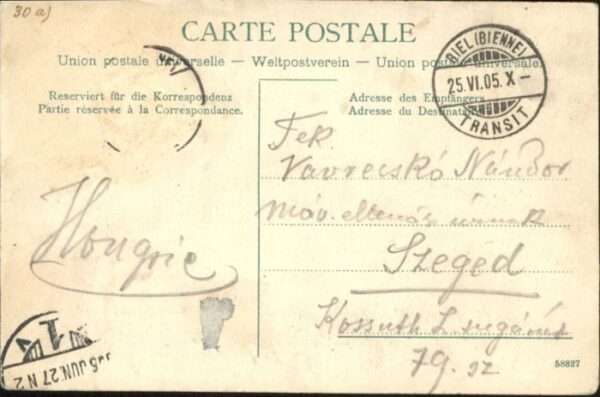 30 a)
CARTE POSTALE
Union postale universelle – Weltpostverein – Union postale universale
Reserviert für die Korrespondenz
Partie réservée à la Correspondance.
Adresse des Empfängers
Adresse du Destinataire
BIEL (BIENNE)
25.VI.05.X–
TRANSIT
Tek.
Vavrecskó Nándor
máv. ellenőr úrnak
Szeged
Kossuth L. sugárút
79. sz
Hongrie
JUN 27 N 2
1
58827